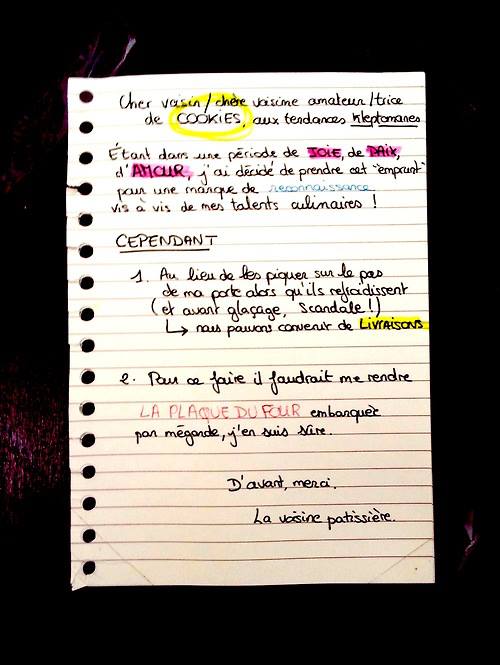 Cher voisin / chère voisine amateur/trice
de COOKIES, aux tendances kleptomanes
Étant dans une période de JOIE, de PAIX,
d'AMOUR, j'ai décidé de prendre cet "emprunt"
pour une marque de reconnaissance
vis à vis de mes talents culinaires !
CEPENDANT
1. Au lieu de les piquer sur le pas
de ma porte alors qu'ils refroidissent
(et avant glaçage, Scandale !)
↳ nous pouvons convenir de LIVRAISONS
2. Pour ce faire il faudrait me rendre
LA PLAQUE DU FOUR embarquée
par mégarde, j'en suis sûre.
D'avant, merci.
La voisine patissière.